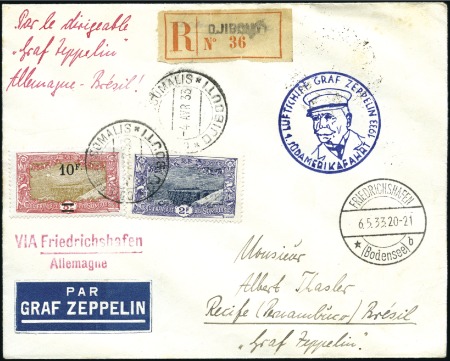 Par le dirigeable
"Graf Zeppelin"
Allemagne - Brésil!
R DJIBOUTI
No 36
LUFTSCHIFF GRAF ZEPPELIN 1933
SÜDAMERIKAFAHRT
DJIBOUTI
SOMALIS
DJIBOUTI
SOMALIS
10F
2F
FRIEDRICHSHAFEN
6.5.33.20-21
* (Bodensee) b
VIA Friedrichshafen
Allemagne
PAR
GRAF ZEPPELIN
Monsieur
Albert Thasler
Recife (Pernambuco) Brésil
"Graf Zeppelin"